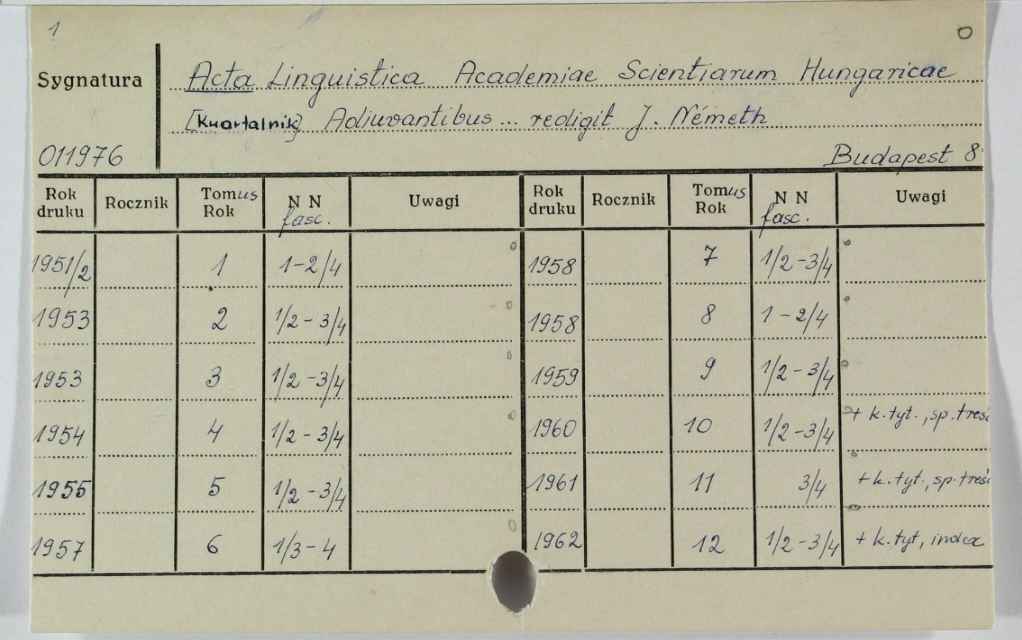 1
Sygnatura Acta Linguistica Academiae Scientiarum Hungaricae
[Kwartalnik] Adiuvantibus ... redigit J. Németh
011976 Budapest 8°
Rok druku Rocznik Tomus Rok NN fasc. Uwagi Rok druku Rocznik Tomus Rok NN fasc. Uwagi
1951/2 1 1-2/4 1958 7 1/2-3/4
1953 2 1/2-3/4 1958 8 1-2/4
1953 3 1/2-3/4 1959 9 1/2-3/4
1954 4 1/2-3/4 1960 10 1/2-3/4 + k.tyt., sp.treśc
1955 5 1/2-3/4 1961 11 3/4 + k.tyt., sp.treśc
1957 6 1/3-4 1962 12 1/2-3/4 + k.tyt, index